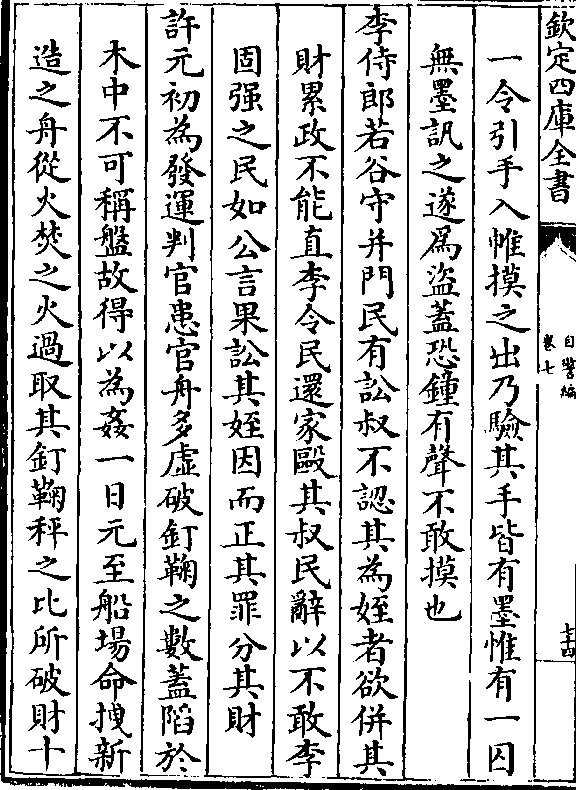 欽定四庫全書
自警編
卷七
十四
一令引手入帷摸之出乃驗其手皆有墨惟有一囚
無墨訊之遂爲盜蓋恐鐘有聲不敢摸也
李侍郎若谷守并門民有訟叔不認其為姪者欲併其
財累政不能直李令民還家毆其叔民辭以不敢李
固强之民如公言果訟其姪因而正其罪分其財
許元初為發運判官患官舟多虛破釘鞠之數蓋陷於
木中不可稱盤故得以為姦一日元至船場命拽新
造之舟從火焚之火過取其釘鞠秤之比所破財十